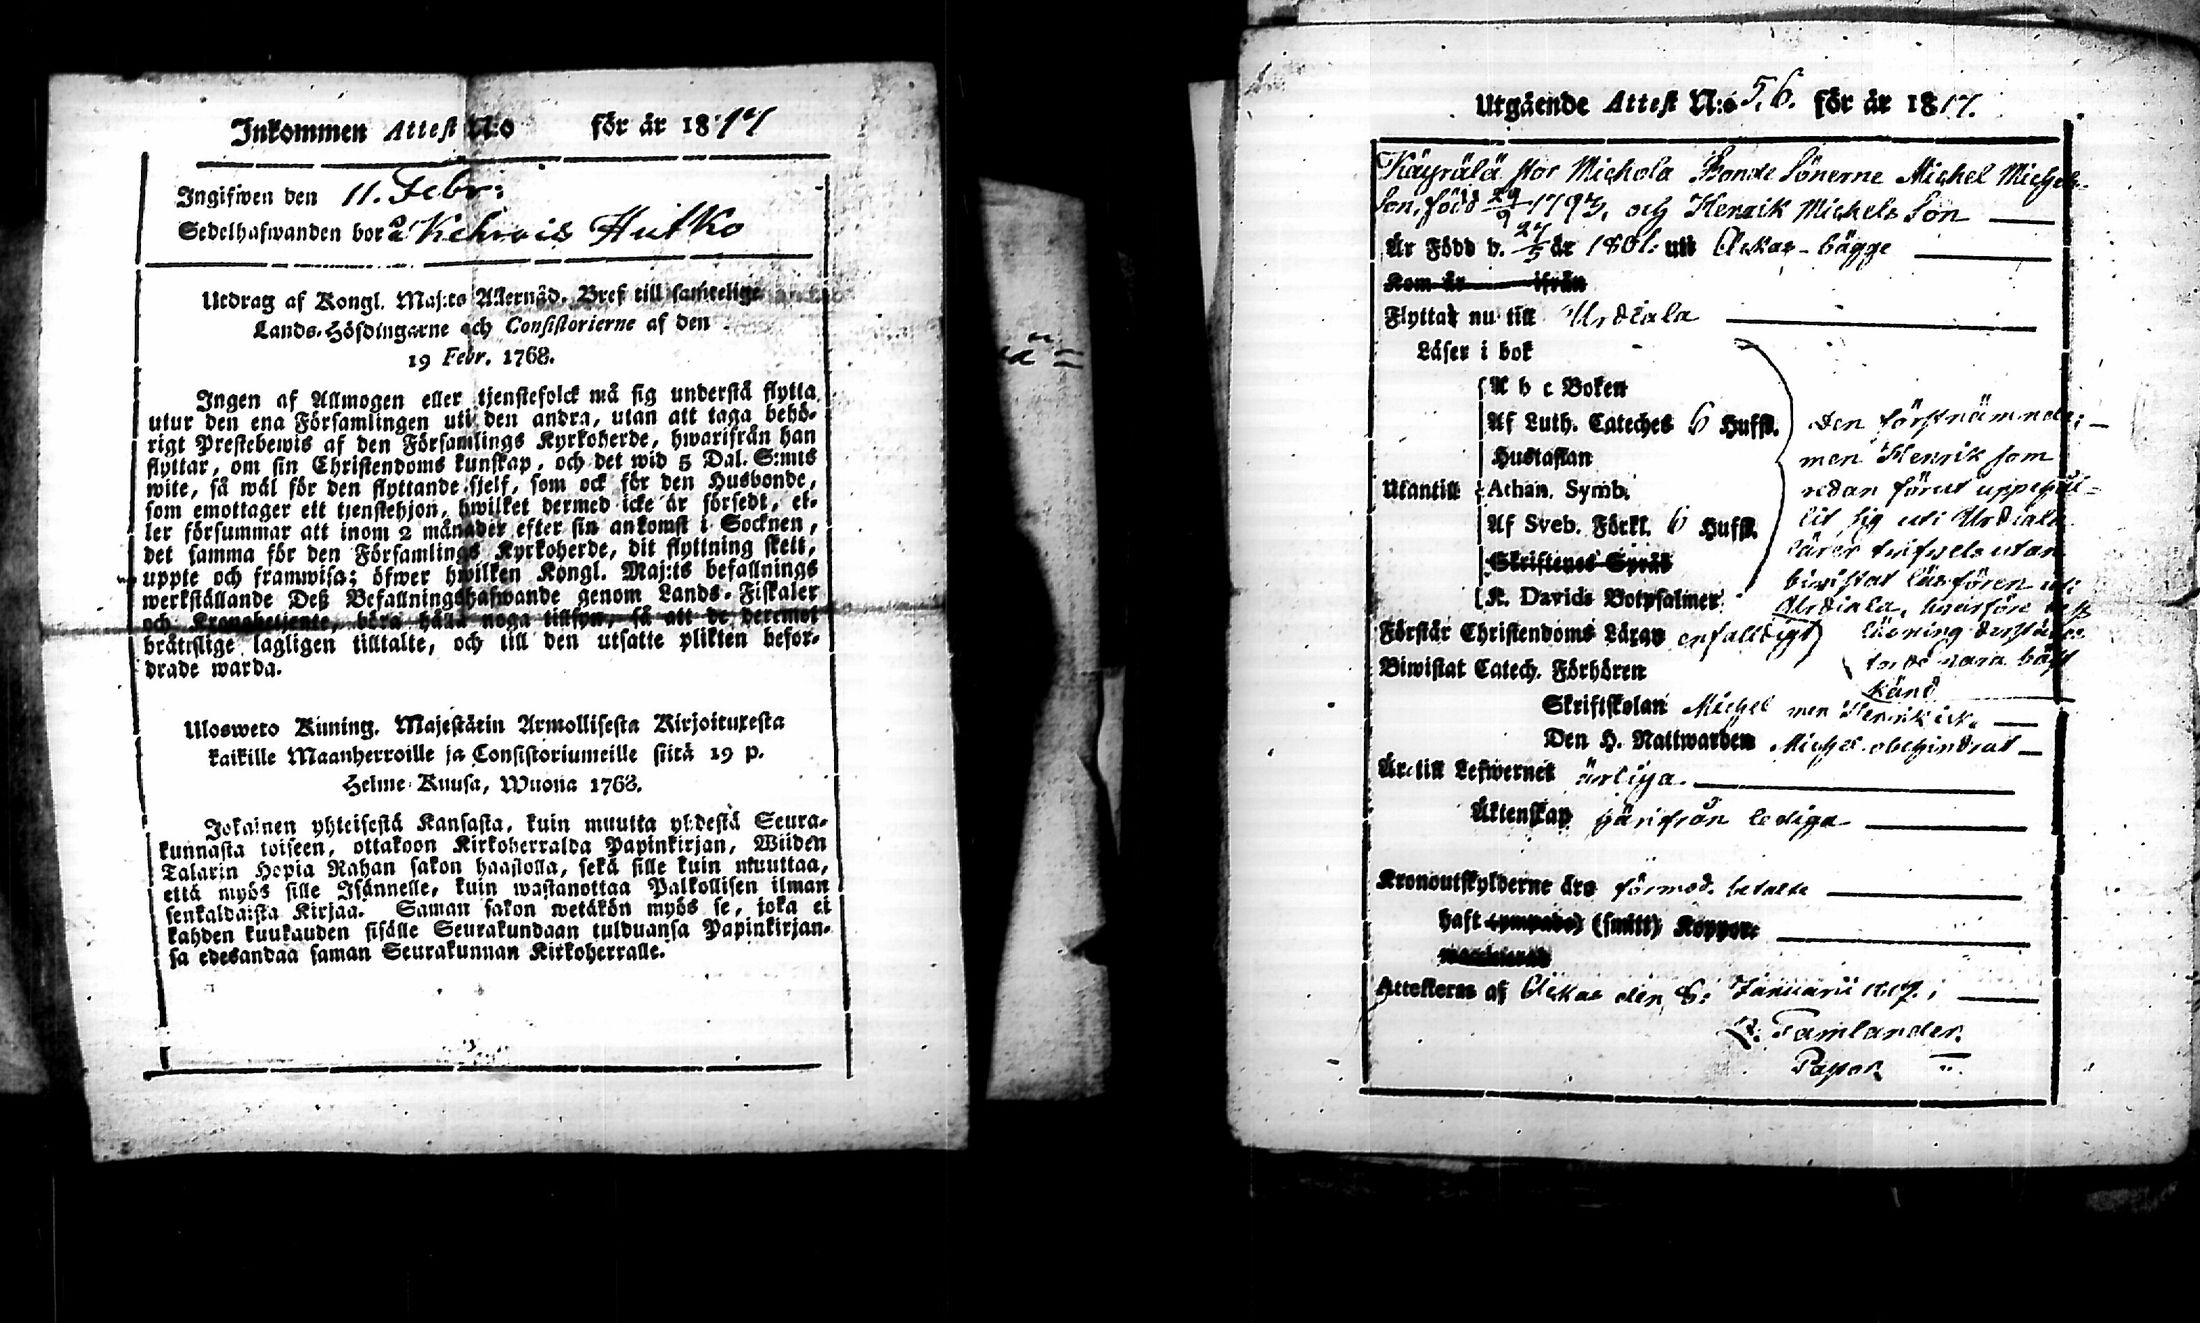 Inkommen Attest N:o för år 1817
Ingifwen den 11. Febr:
Sedelhafwanden bor på Kehrois Hutko
Utdrag af Kongl. Maj:ts Allernåd. Bref till samtelige
Lands-Höfdingarne och Consistorierne af den
19 Febr. 1768.
Ingen af Allmogen eller tjenstefolck må sig understå flytta
utur den ena Församlingen uti den andra, utan att taga behö-
rigt Prestebewis af den Församlings Kyrkoherde, hwarifrån han
flyttar, om sin Christendoms kunskap, och det wid 5 Dal. S:mts
wite, så wäl för den flyttande sjelf, som ock för den Husbonde,
som emottager ett tjenstehjon, hwilket dermed icke är försedt, el-
ler försummar att inom 2 månader efter sin ankomst i Socknen,
det samma för den Församlings Kyrkoherde, dit flyttning skett,
uppte och framwisa; öfwer hwilken Kongl. Maj:ts befallnings
werkställande Deß Befallningshafwande genom Lands-Fiskaler
och Kronobetjente, böra hålla noga tillsyn, så att de deremot
bråttslige lagligen tilltalte, och till den utsatte plikten befor-
drade warda.
Ulosweto Kuning. Majestätin Armollisesta Kirjoituxesta
kaikille Maanherroille ja Consistoriumeille siitä 19 p.
Helme-Kuusa, Wuona 1768.
Jokainen yhteisestä Kansasta, kuin muutta yhdestä Seura-
kunnasta toiseen, ottakoon Kirkoherralda Papinkirjan, Wiiden
Talarin Hopia Rahan sakon haastolla, sekä sille kuin muuttaa,
että myös sille Isännelle, kuin wastanottaa Palkollisen ilman
senkaldaista Kirjaa. Saman sakon wetäkön myös se, joka ei
kahden kuukauden sisälle Seurakundaan tulduansa Papinkirjan-
sa edesandaa saman Seurakunnan Kirkoherralle.
Utgående Attest N:o 56. för år 1817.
Käyrälä Stor Michola Bonde Sönerne Michel Michels
Son, född 29/9 1793, och Henrik Michels Son
Är Född d. 27/5 år 1801. uti Ackas - bägge
Kom år ifrån
Flyttar nu till Urdiala
Läser i bok
A b c Boken
Af Luth. Cateches 6 Hufst.
Hustaflan
Utantill Athan. Symb.
Af Sveb. Förkl. 6 Hufst.
Skriftenes Språk
K. Davids Botpsalmer
den förstnämnde;
men Henrik som
redan förut uppehål-
lit sig uti Urdiala
lärer
bivistat läsfören uti
Urdiala, hvarföre dess
läsning derstädes
torde vara bäst
känd
Förstår Christendoms Läran enfalldigt
Biwistat Catech. Förhören
Skriftskolan Michel men Henrik ick.
Den H. Nattwarden Michel obehindrat
Är till Lefwernet ärliga
Äktenskap härifrån lediga
Kronoutskylderne äro förmod. betalte
haft (smitt) Koppor.
Attesteras af Ackas den 8: Januarii 1817.
Tamlander.
Pastor